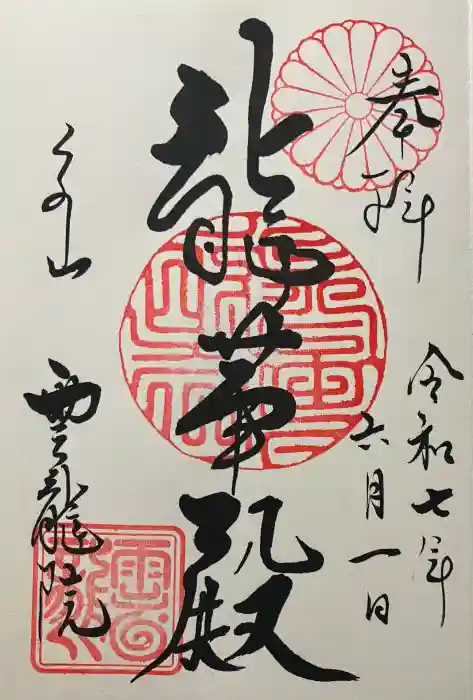 奉拝
令和七年
六月一日
龍華殿
みてら
雲龍院